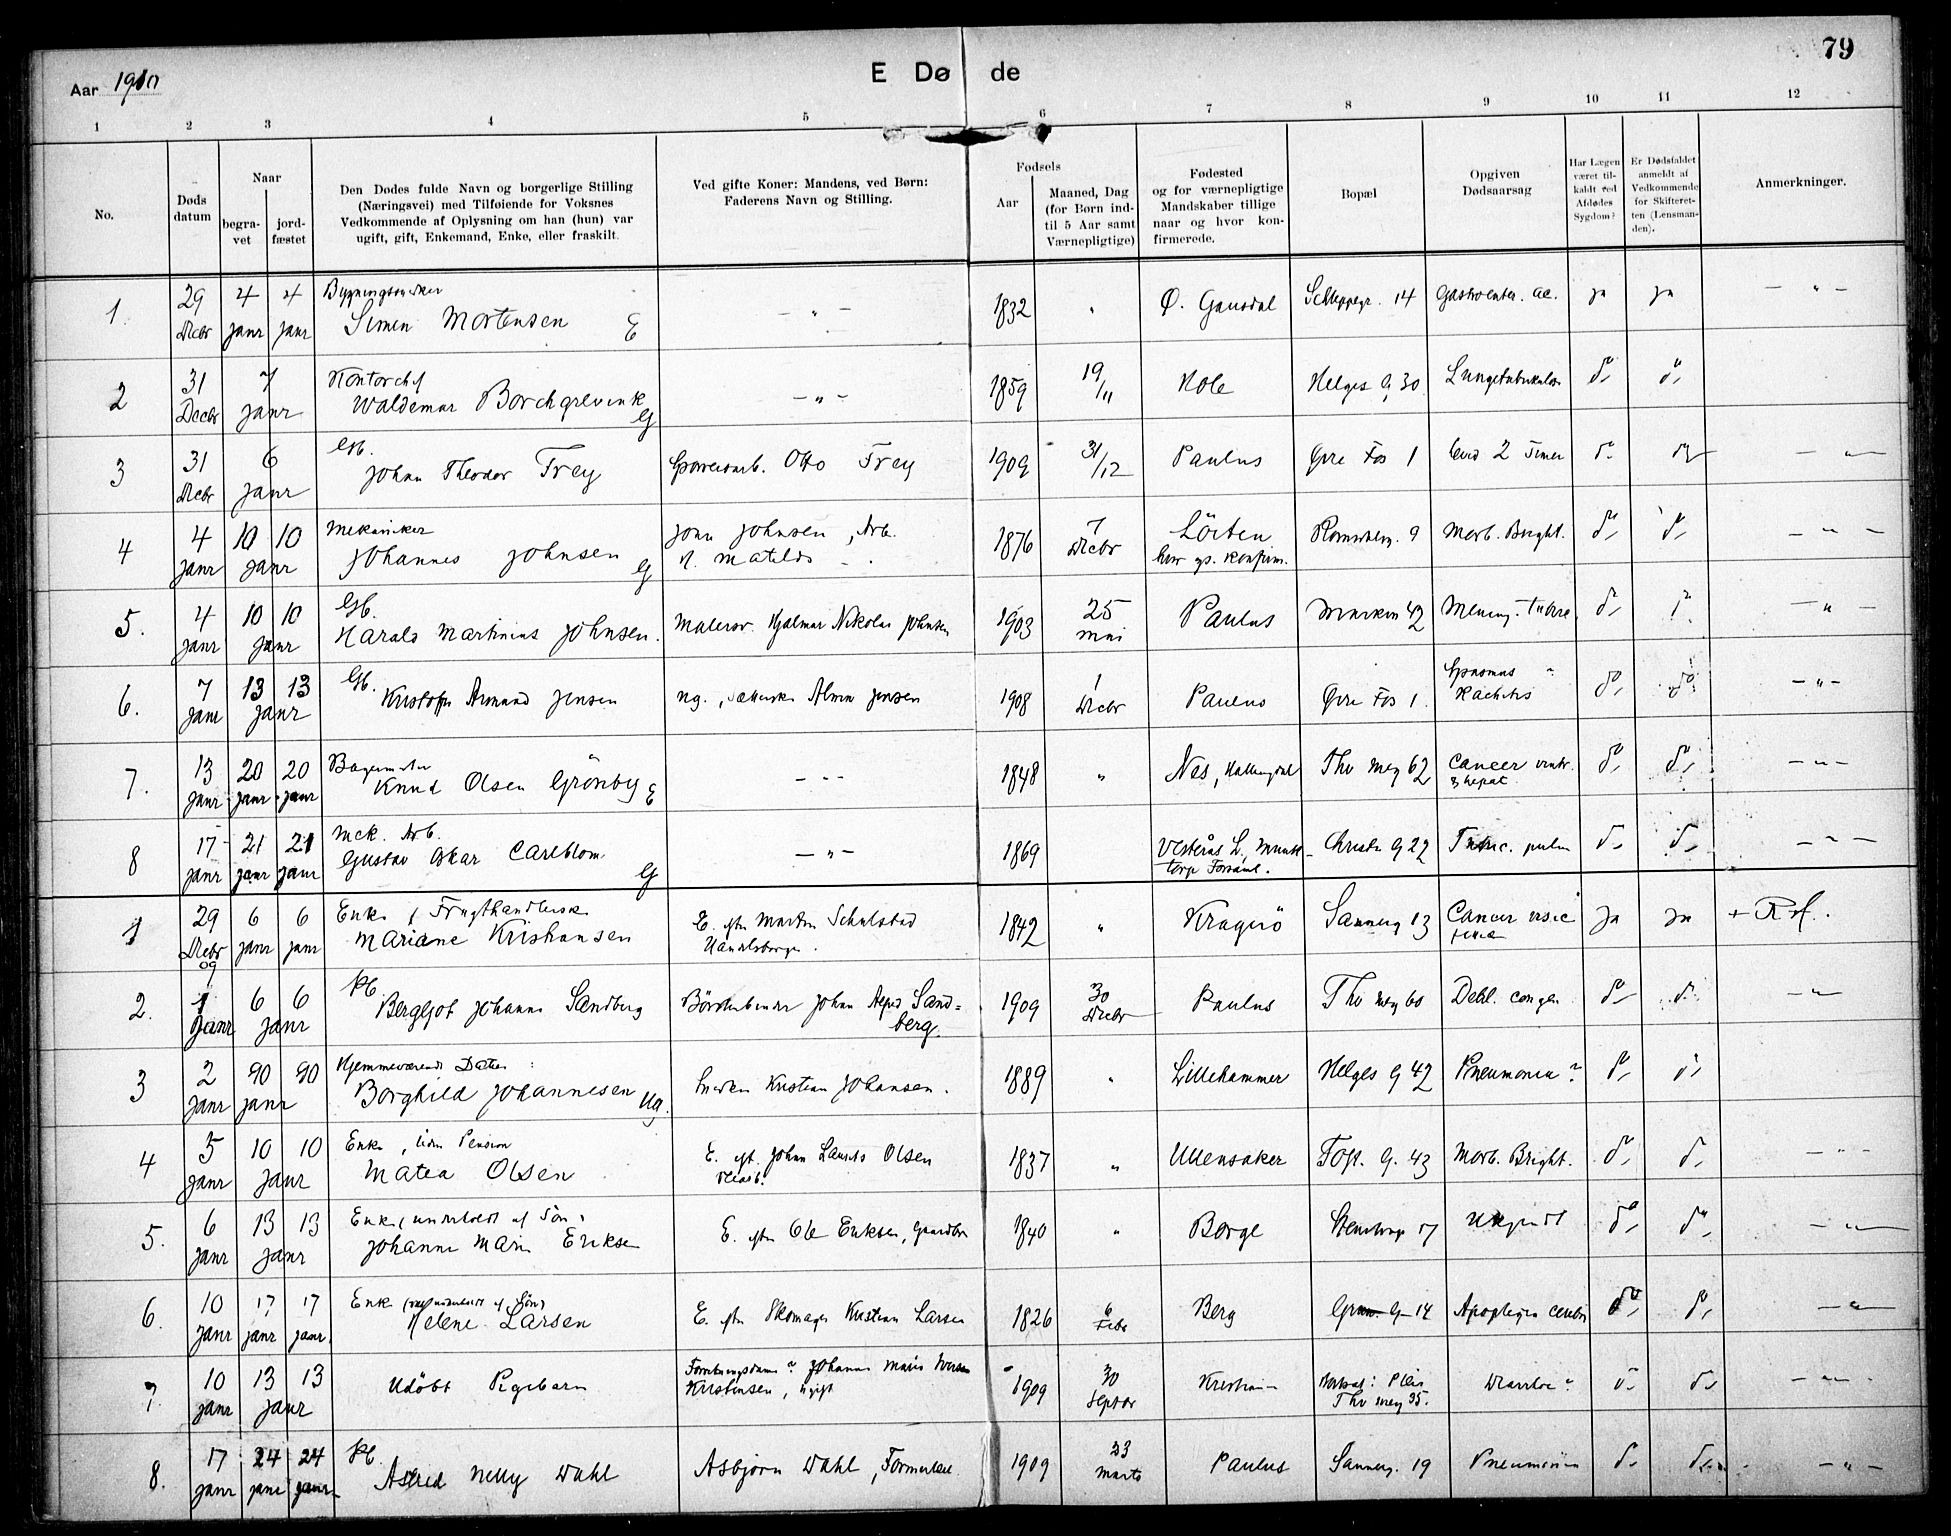 79
Aar 1910
E Dø de
1 2 3 4 5 6 7 8 9 10 11 12
No.
Døds datum
Naar
begra-vet
jord-fæstet
Den Dødes fulde Navn og borgerlige Stilling
(Næringsvei) med Tilføiende for Voksnes
Vedkommende af Oplysning om han (hun) var
ugift, gift, Enkemand, Enke, eller fraskilt.
Ved gifte Koner: Mandens, ved Børn:
Faderens Navn og Stilling.
Fødsels
Aar
Maaned, Dag
(for Børn ind-
til 5 Aar samt
Værnepligtige)
Fødested
og for værnepligtige
Mandskaber tillige
naar og hvor kon-
firmerede.
Bopæl
Opgiven
Dødsaarsag
Har Lægen
været til-
kaldt ved
Afdødes
Sygdom?
Er Dødsfaldet
anmeldt af
Vedkommende
for Skifteret-
ten (Lensman-
den).
Anmerkninger.
1. 29 4 4 1832 " Ø. Gausdal Schleppegr. 14 Gastroenter. ac. ja ja — " —
Decbr janr janr Simen Mortensen E — " —
2 31 7 Kontorchef 1859 19/11 Hole Helges G 30 Lungetuberkulose do do
Decbr janr Waldemar Borchgrevink G — " —
3 31 6 Gb. Otto Frey 1909 31/12 Paulus Øvre Fos 1 Levd 2 Timer do do — " —
Decbr janr Johan Theodor Frey
4 4 10 10 Mekaniker John Johnsen, Arb. 1876 7 Löiten 9 Morb. Bright. do do — " —
janr janr Johannes Johnsen G Matilde Decbr konfirm.
5. 4 10 10 Gb. Malersv. Hjalmar Nikolai Johnsen 1903 25 Paulus Markvn 42 Mening. do — " —
janr janr Harald Martinius Johnsen. mai
6. 7 13 13 Gb. Alvin Jensen 1908 1 Paulus Øvre Fos 1. Spasmus do do — " —
janr janr Kristoffer Armand Jensen Decbr Rachitis
7. 13 20 20 Bagermester — " — 1848 " Nes, Hallingdal Thv mey 62 Cancer ventr. do do — " —
janr janr janr Knud Olsen Grönby E & hepat.
8 17 21 21 Mek. Arb. — " — 1869 Vesterås L, Munk- Christs G 22 Tuberc. pulm do do — " —
janr janr janr Gustav Oskar Carlblom G torp Församl.
1 29 6 6 Enke, Frugthandlerske E. efter Martin Schulstad 1842 " Kragerö Sannerg 13 Cancer vesic ja ja +
Decbr janr janr Mariane Kristiansen
2. 1 6 6 Pb. Börstenbinder Johan Sand= 1909 30 Paulus Thv mey 60 Debl. congen do do — " —
Janr janr Bergljot Johanne Sandberg berg. Decbr
3 2 90 90 Hjemmeværende Datter Snedker Kristian Johansen. 1889 " Lillehammer Helges G 42 Pneumonia? do do
janr janr Borghild Johannesen ug.
4 5 10 10 Enke, uden Pension E. eft. Johan Laurits Olsen 1837 " Ullensaker G. 43 Morb. Bright. do do — " —
janr janr Matea Olsen
5. 6 13 13 Enke, underholdt af Sön E. efter Ole Eriksen, Gaardbr 1840 " Borge Steenstrup 17 Ukjendt do do — " —
janr janr Johanne Marie Eriksen
6. 10 17 17 Enke underholdt af Sön E. efter Skomager Kristian Larsen 1826 6 Berg G 14 Apoplexia cerebri do do — " —
janr janr janr. Helene Larsen Febr
7. 10 13 13 Udöbt Pigebarn Johanne Marie Iversen 1909 30 Kristiania Diarrhoe? do do — " —
janr janr Kristensen, ugift Septbr Thv mey 35.
8. 17 24 24 Pb. Asbjörn Dahl, Formerlære 1909 23 Paulus Sannerg. 19 Pneumonia do do — " —
janr janr janr Astrid Nelly Dahl Marts